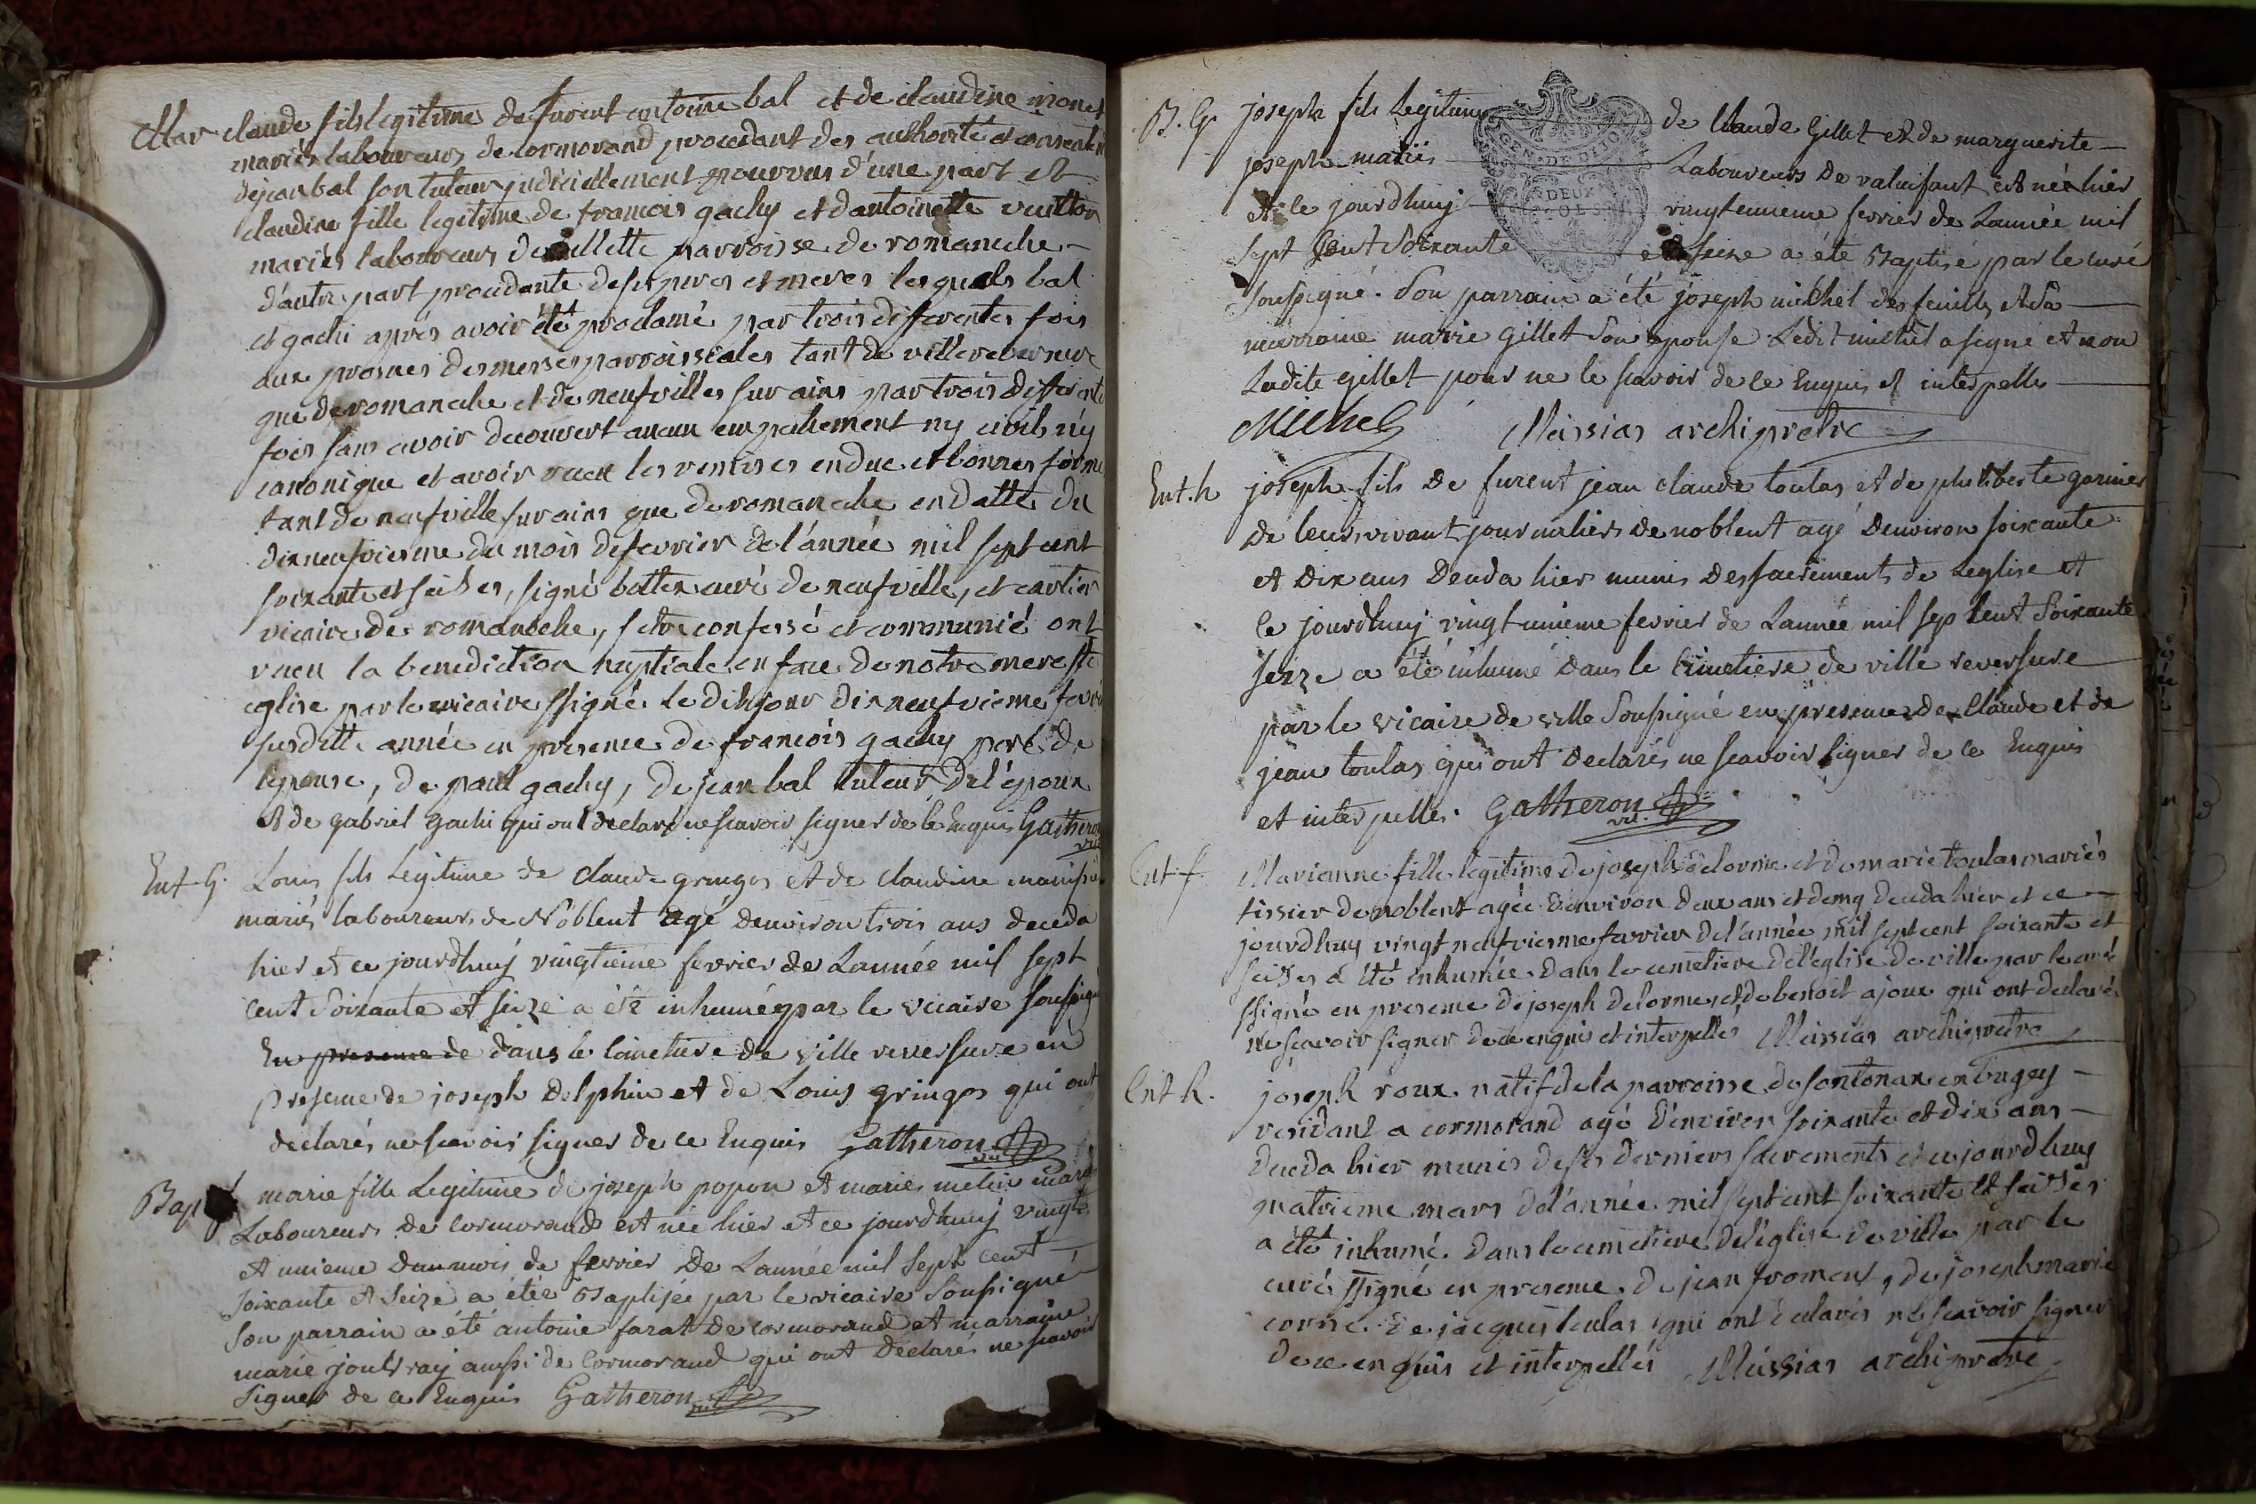 Mar claude fils legitime de furent antoine bal et de claudine monet
mariés laboureurs de cormorand procedant des authorité et
de jean bal son tuteur judiciellement pourvus d'une part et
claudine fille legitime de francois gachy et d'antoinette vuitton
mariés laboureurs de parroisse de romaneche
d'autre part procedante de ses peres et meres lesquels bal
et gachi aprés avoir été proclamé par trois differentes fois
aux prosnes des messes parroissiales tant de villereversure
que de romaneche et de neufville sur ains par trois differente
fois sans avoir decouvert aucun empechement ny civil ny
canonique et avoir recu les remises en due et bonnes forme
tant de neufville sur ains que de romaneche en datte du
dixneufvieme du mois de fevrier de l'année mil sept cent
soixante et seizes, signé curé de neufville, et
vicaire de romaneche, s'etre confessé et communié ont
recu la benediction nuptiale en face de notre mere ste
eglise par le vicaire ssigné le dihjour dixneufvieme fevrier
susditte année en presence de francois gachy pere de
lepouse, de paul gachy, de jean bal tuteur de l'époux
et de gabriel gachi qui ont declaré ne scavoir signer de ce enquis Gatheron
vic
Ent. G. Louis fils Legitime de claude gringos et de claudine
mariés laboureurs de Noblent agé denviron trois ans deceda
hier et ce jourdhuy vingtieme fevrier de Lannée mil sept
cent soixante et seize a été inhumé par le vicaire soussigné
En presence de dans le cimetiere de ville reversure en
presence de joseph Delphin et de Louis gringos qui ont
declarés ne scavoir signer de ce Enquis Gatheron vic
Bapt marie fille Legitime de joseph popon et marie
Laboureurs de cormorand est née hier et ce jourdhuy vingt
et unieme du mois de fevrier De Lannée mil sept cent
soixante et seize a étée Baptisée par le vicaire soussigné
son parrain a été antoine farat de cormorand et marraine
marie aussi de Cormorand qui ont declaré ne scavoir
signer de ce Enquis Gatheron vic
B. G. joseph fils Legitime de Claude Gillet et de marguerite
joseph mariés Laboureurs de valuifant est né hier
et ce jourdhuy vingtunieme fevrier de Lannée mil
sept Cent Soixante et seize a été Baptisé par le curé
soussigné. Son parrain a été joseph michel des feuilles et sa
marraine marie Gillet Son epouse Ledit michel a signé et non
Ladite Gillet pour ne le scavoir de ce Enquis et interpellé
GEN. DE DIJON
DEUX
SOLS
Michel Messias archiprêtre
Ent. h joseph fils de furent jean claude toulas et de philiberte garnier
de leurs vivant journaliers de noblent agé Denviron soixante
et Dix ans Deceda hier munis des sacrements de Leglise et
ce jourdhuy vingt unieme fevrier de Lannée mil sep Cent Soixante
seize a été inhumé dans le Cimetiere de ville reversure
par le vicaire de ville Soussigné en presence de Claude et de
jean toulas qui ont Declarés ne scavoir signer de ce Enquis
et interpellés. Gatheron vic.
Ent. f. Marianne fille legitime de joseph delorme et de marie toulas mariés
tissier de noblent agée d'environ deux ans et demy deceda hier et ce
jourdhuy vingt neufvieme fevrier de l'année mil sept cent soixante et
seizes a été inhumée dans le cemetiere de l'eglise de ville par le curé
ssigné en presence de joseph delorme et de benoit ajoux qui ont declarés
ne scavoir signer de ce enquis et interpellé Messias archiprêtre
Ent h. joseph roux natif de la parroisse de sontonax en bugey
residant a cormorand agé d'environ soixante et dix ans
deceda hier munis de ses derniers sacrements et ce jourdhuy
quatrieme mars de l'année mil sept cent soixante et seizes
a été inhumé dans le cemetiere de l'église de ville par le
curé ssigné en presence de jean froment, de joseph marie
de jacques toulas qui ont declarés ne scavoir signer
de ce enquis et interpellés Messias archiprêtre